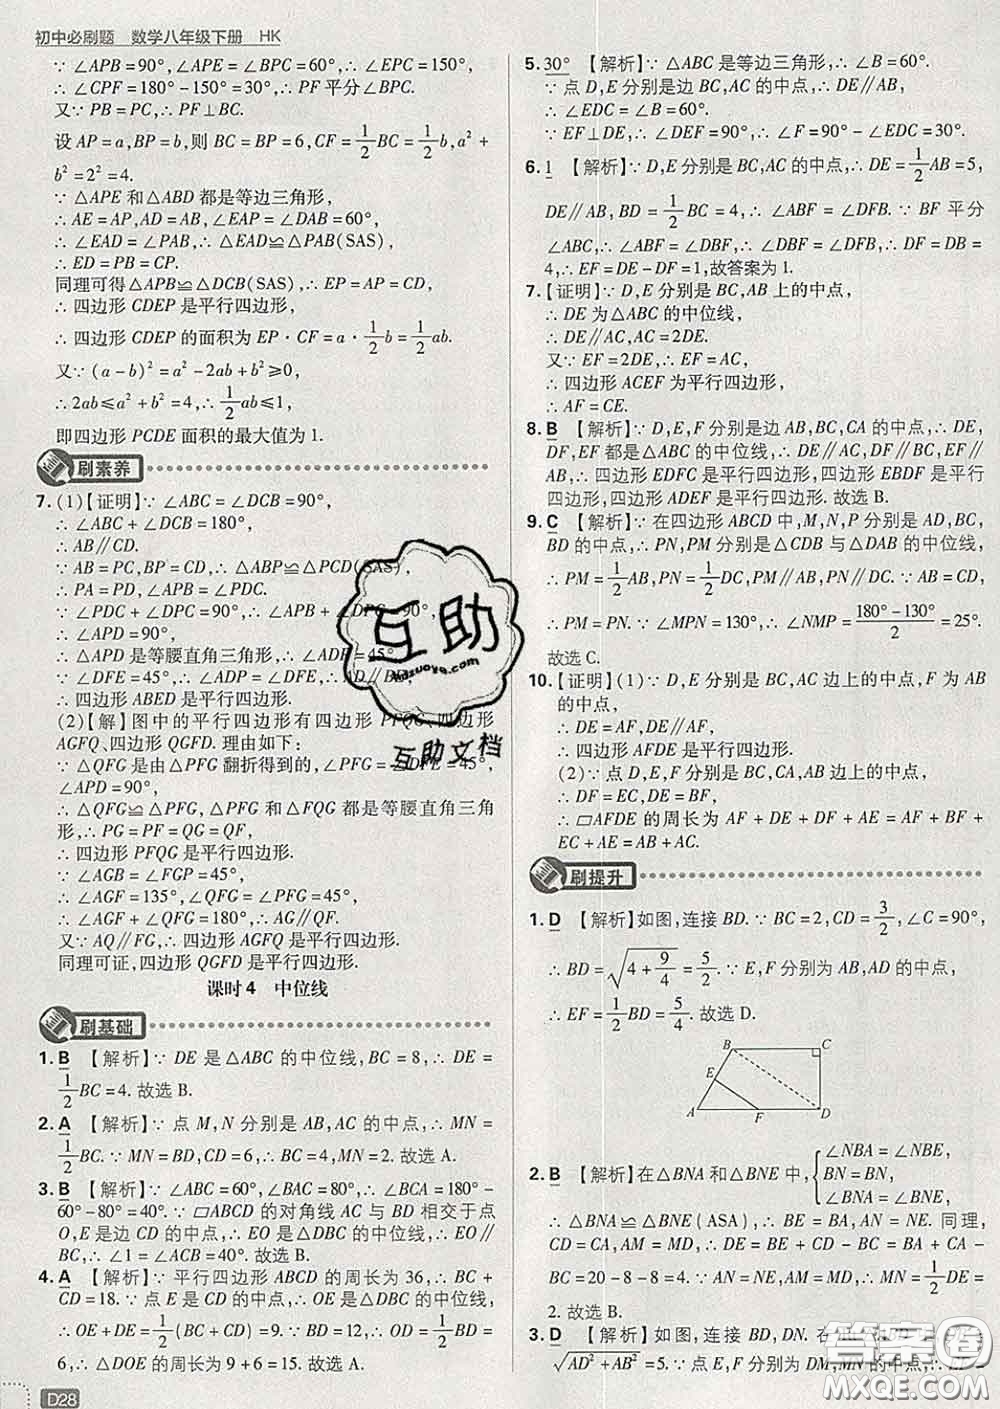 初中必刷题 数学八年级下册 HK
∵ ∠APB=90°,∠APE=∠BPC=60°,∴ ∠EPC=150°,
∴ ∠CPF=180°-150°=30°,∴ PF 平分∠BPC.
又∵ PB=PC,∴ PF⊥BC.
设 AP=a,BP=b,则 BC=BP=b,CF=1/2BC=1/2b,a²+
b²=2²=4.
∵ △APE 和△ABD 都是等边三角形,
∴ AE=AP,AD=AB,∠EAP=∠DAB=60°,
∴ ∠EAD=∠PAB,∴ △EAD≌△PAB(SAS),
∴ ED=PB=CP.
同理可得△APB≌△DCB(SAS),∴ EP=AP=CD,
∴ 四边形 CDEP 是平行四边形,
∴ 四边形 CDEP 的面积为 EP·CF=a·1/2b=1/2ab.
又∵ (a-b)²=a²-2ab+b²≥0,
∴ 2ab≤a²+b²=4,∴ 1/2ab≤1,
即四边形 PCDE 面积的最大值为 1.
刷素养
7. (1)【证明】∵ ∠ABC=∠DCB=90°,
∴ ∠ABC+∠DCB=180°,
∴ AB∥CD.
∵ AB=PC,BP=CD,∴ △ABP≌△PCD(SAS),
∴ PA=PD,∠APB=∠PDC.
∵ ∠PDC+∠DPC=90°,∴ ∠APB+∠DPC=90°,
∴ ∠APD=90°,
∴ △APD 是等腰直角三角形,∴ ∠ADP=45°.
∵ ∠DFE=45°,∴ ∠ADP=∠DFE,∴ AD∥BE,
∴ 四边形 ABED 是平行四边形.
(2)【解】图中的平行四边形有四边形 PFQG、四边形
AGFQ、四边形 QGFD. 理由如下:
∵ △QFG 是由△PFG 翻折得到的,∠PFG=∠DFE=45°,
∠APD=90°,
∴ △QFG≌△PFG,△PFG 和△FQG 都是等腰直角三角
形,∴ PG=PF=QG=QF,
∴ 四边形 PFQG 是平行四边形.
∵ ∠AGB=∠FGP=45°,
∴ ∠AGF=135°,∠QFG=∠PFG=45°,
∴ ∠QFG+∠AGF=180°,∴ AG∥FQ.
又∵ AQ∥FG,∴ 四边形 AGFQ 是平行四边形.
同理可证,四边形 QGFD 是平行四边形.
课时4 中位线
刷基础
1. B 【解析】∵ DE 是△ABC 的中位线,BC=8,∴ DE=
1/2BC=4. 故选 B.
2. A 【解析】∵ 点 M,N 分别是 AB,AC 的中点,∴ MN=
1/2BC. ∵ MN=BD=2,∴ BC=4,∴ MN=2. 故选 A.
3. B 【解析】∵ ∠ABC=60°,∠BAC=80°,∴ ∠BCA=180°-
60°-80°=40°. ∵ ▱ABCD 的对角线 AC 与 BD 相交于点
O,E 是边 CD 的中点,∴ EO 是△DBC 的中位线,∴ EO∥
BC,∴ ∠1=∠ACB=40°. 故选 B.
4. A 【解析】∵ 平行四边形 ABCD 的周长为 36,∴ BC+
CD=18. ∵ 点 E 是 CD 的中点,∴ OE 是△DBC 的中位线,
∴ OE+DE=1/2(BC+CD)=9. ∵ BD=12,∴ OD=1/2BD=
6,∴ △DOE 的周长为 9+6=15. 故选 A.
D28
5. 30° 【解析】∵ △ABC 是等边三角形,∴ ∠B=60°.
∵ 点 D,E 分别是边 BC,AC 的中点,∴ DE∥AB,
∴ ∠EDC=∠B=60°.
∵ EF⊥DE,∴ ∠F=90°-∠EDC=30°.
6. 1 【解析】∵ D,E 分别是 BC,AC 的中点,∴ DE=1/2AB=5,
DE∥AB,BD=1/2BC=4,∴ ∠ABF=∠DFB. ∵ BF 平分
∠ABC,∴ ∠ABF=∠DBF,∴ ∠DBF=∠DFB,∴ DF=DB=
4,∴ EF=DE-DF=1,故答案为 1.
7. 【证明】∵ D,E 分别是 BC,AB 上的中点,
∴ DE 为△ABC 的中位线,
∴ DE∥AC,AC=2DE.
又∵ EF=2DE,∴ EF=AC,
∴ 四边形 ACEF 为平行四边形,
∴ AF=CE.
8. B 【解析】∵ D,E,F 分别是边 AB,BC,CA 的中点,∴ DE,
DF,EF 都是△ABC 的中位线,∴ DE∥AC,DF∥BC,
EF∥AB,∴ 四边形 EDFC 是平行四边形,四边形 EBDF 是平行
四边形,四边形 ADEF 是平行四边形. 故选 B.
9. C 【解析】∵ 在四边形 ABCD 中,M,N,P 分别是 AD,BC,
BD 的中点,∴ PN,PM 分别是△CDB 与△DAB 的中位线,
∴ PM=1/2AB,PN=1/2DC,PM∥AB,PN∥DC. ∵ AB=CD,
∴ PM=PN. ∵ ∠MPN=130°,∴ ∠NMP=(180°-130°)/2=25°.
故选 C.
10. 【证明】(1)∵ D,E 分别是 BC,AC 边上的中点,F 为 AB
的中点,
∴ DE=AF,DE∥AF,
∴ 四边形 AFDE 是平行四边形.
(2)∵ 点 D,E,F 分别是 BC,CA,AB 边上的中点,
∴ DF=EC,DE=FB,
∴ ▱AFDE 的周长为 AF+DE+DF+AE=AF+BF+
EC+AE=AB+AC.
刷提升
1. D 【解析】如图,连接 BD. ∵ BC=2,CD=3/2,∠C=90°,
∴ BD=√(4+9/4)=5/2. ∵ E,F 分别为 AB,AD 的中点,
∴ EF=1/2BD=5/4. 故选 D.
B C
E
A F D
2. B 【解析】在△BNA 和△BNE 中,{∠NBA=∠NBE,
BN=BN,
∠BNA=∠BNE,
∴ △BNA≌△BNE(ASA),∴ BE=BA,AN=NE. 同理,
CD=CA,AM=MD,∴ DE=BE+CD-BC=BA+CA-
BC=20-8-8=4. ∵ AN=NE,AM=MD,∴ MN=1/2DE=
2. 故选 B.
3. D 【解析】如图,连接 BD,DN. 在
√(AD²+AB²)=5. ∵ 点 E,F 分别为 DM,MN 的中点,
互助
Huzuoya.com
互助文档
答案圈
MXQE.COM